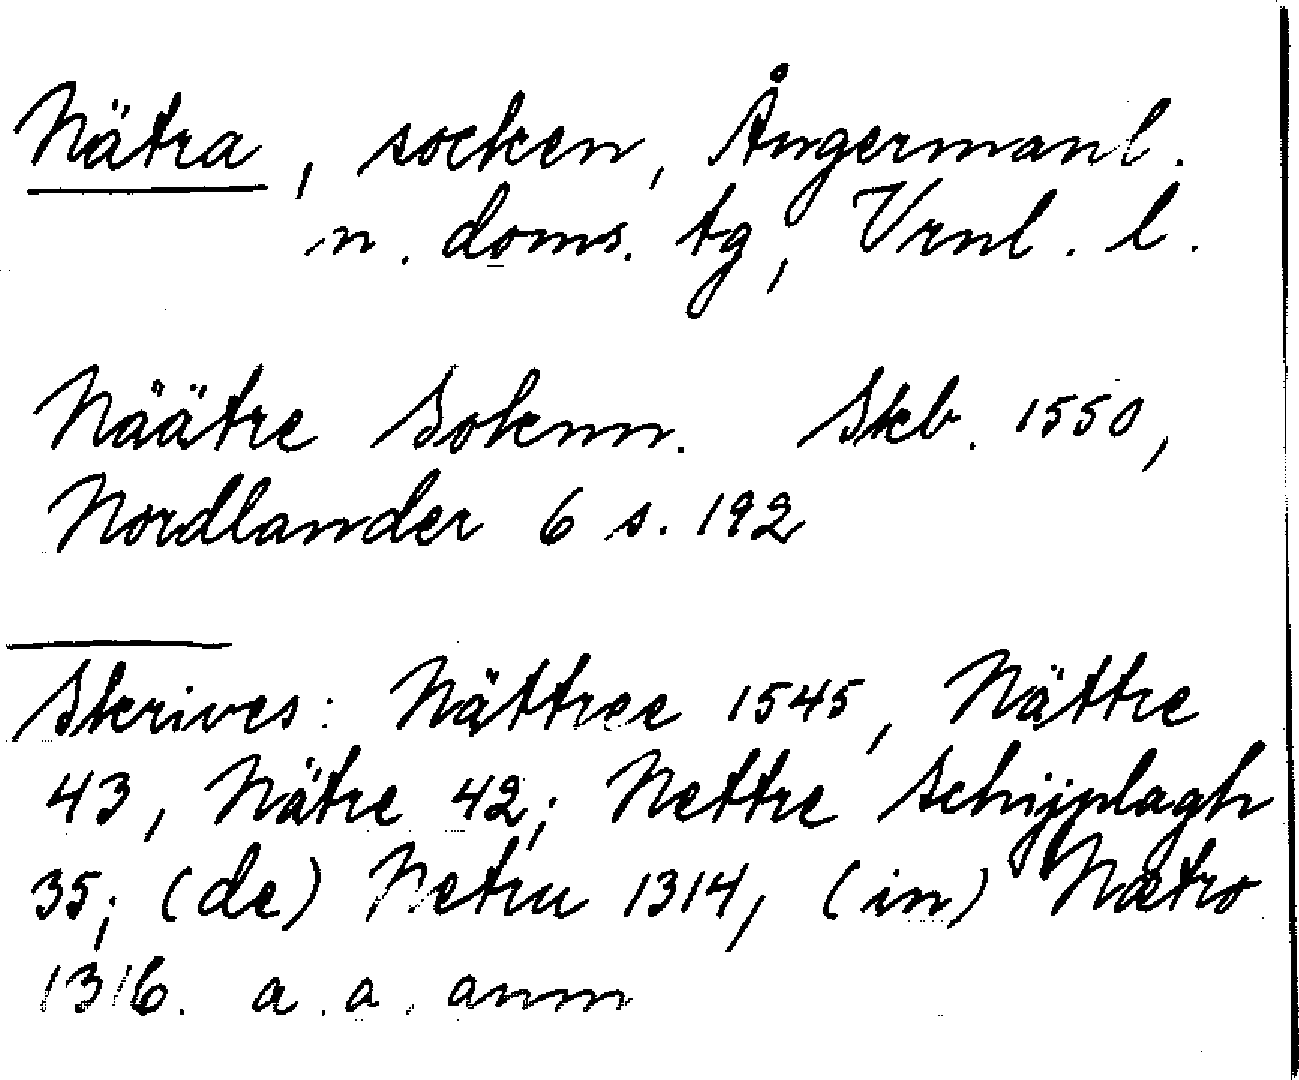 Nätra, socken, Ångermanl.
n. doms. tg, Vrnl. l.
Näätre Soknn. Skb. 1550,
Nordlander 6 s. 192
Skrives: Nättree 1545, Nättre
43, Nätre 42; Nettre schijplagh
35; (de) Netru 1314, (in) Nætro
1316. a. a. anm